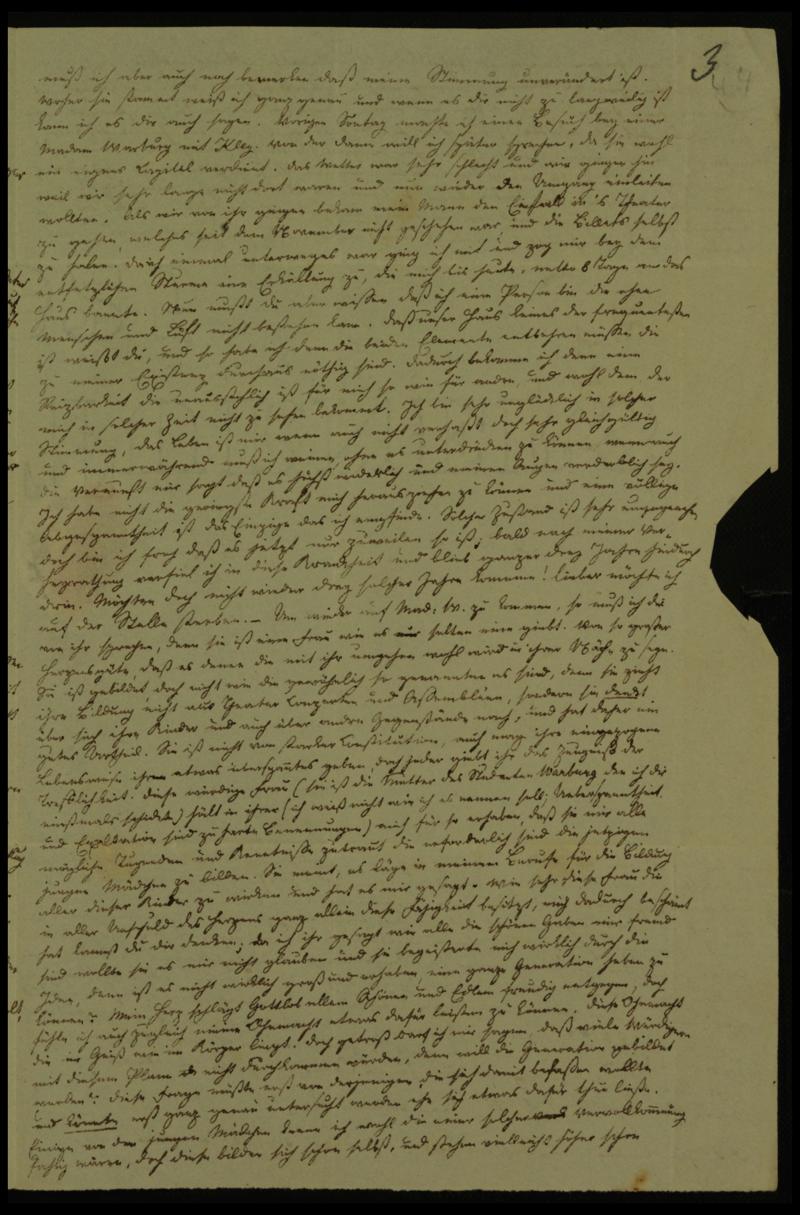 3
muß ich aber auch noch bemerken daß meine Stimmung unverändert ist.
Woher sie stammt weiß ich ganz genau und wenn es dir nicht zu langweilig ist
kann ich es dir auch sagen. Vorigen Sontag machte ich einen Besuch bey einer
Madam Warburg mit Klly. von der dann will ich später sprechen, da sie wohl
ein eignes Capital verdient. Das Wetter war sehr schlecht und wir gingen hin
weil wir sehr lange nicht dort waren und nun wieder den Umgang einleiten
wollten. Als wir von ihr gingen bekam mein Mann den Einfall in's Theater
zu gehen, welches seit dem November nicht geschehen war, und die Billets selbst
zu holen. Da ich einmal unterweges war ging ich mit und zog mir bey dem
entsetzlichen Sturme eine Erkältung zu, die mich bis heute, netto 8 Tage an das
Haus bannte. Nun mußt du aber wissen daß ich eine Person bin die ohne
Menschen und Luft nicht bestehen kann. Daß unser Haus keines der frequentesten
ist weißt du, und so habe ich denn die beiden Elemente entbehren müssen die
zu meiner Existenz durchaus nöthig sind. Dadurch bekomme ich denn eine
Reizbarkeit die unausstehlich ist für mich so wie für andre, und wohl dem der
mich in solcher Zeit nicht zu sehen bekommt. Ich bin sehr unglücklich in solcher
Stimmung, das Leben ist mir wenn auch nicht verhaßt doch sehr gleichgültig
und immerwährend muß ich weinen ohne es unterdrücken zu können, wenn auch
die Vernunft mir sagt daß es höchst kindisch und meinen Augen verderblich sey.
Ich habe nicht die geringste Kraft mich herausziehen zu können und eine völlige
Abgespanntheit ist das Einzige das ich empfinde. Solcher Zustand ist sehr unangenehm,
doch bin ich froh daß es jetzt nur zuweilen so ist; bald nach meiner Ver-
heyrathung verfiel ich in diese Krankheit und blieb ganzer drey Jahre hindurch
drin. Möchten doch nicht wieder drey solcher Jahre kommen! lieber möchte ich
auf der Stelle sterben. — Um wieder auf Mad: W. zu kommen, so muß ich dir
von ihr sprechen, denn sie ist eine Frau wie es nur selten eine giebt. Von so großer
Herzensgüte, daß es denen die mit ihr umgehen wohl wird in ihrer Nähe zu seyn.
Sie ist gebildet doch nicht wie die gewöhnlich so genannten es sind, denn sie zieht
ihre Bildung nicht aus Theater Conzerten und Assembléen, sondern sie denkt
über sich ihre Kinder und auch über andre Gegenstände nach, und hat daher ein
gutes Urtheil. Sie ist nicht von starker Constitution, auch mag ihre eingezogene
Lebensweise ihr etwas gespanntes geben, doch jeder giebt ihr das Zeugniß der
Trefflichkeit. Diese würdige Frau (sie ist die Mutter des Studenten Warburg den ich dir
einstmals schickte) hält in ihrer (ich weiß nicht wie ich es nennen soll. Ueberspanntheit
und Exaltation sind zu harte Benennungen) mich für so erhaben, daß sie mir alle
mögliche Tugenden und Kenntnisse zutraut die erforderlich sind die jetzigen
jungen Mädchen zu bilden. Sie meint, es läge in meinem Berufe für die Bildung
aller dieser Kinder zu wirken und hat es mir gesagt. Wie sehr diese Frau die
in aller Unschuld des Herzens ganz allein diese Fähigkeit besitzt, mich dadurch beschämt
hat kannst du dir denken; da ich ihr gesagt wie alle die schönen Gaben mir fremd
sind wollte sie es mir nicht glauben und sie begeisterte mich wirklich durch die
Idee, denn ist es nicht wirklich groß und erhaben, eine ganze Generation heben zu
können? Mein Herz schlägt Gottlob allem Schönen und Edlem freudig entgegen, doch
fühle ich auch zugleich meine Ohnmacht etwas dafür leisten zu können. Diese Ohnmacht
die im Geist wie im Körper liegt. Doch getrost darf ich mir sagen daß viele Würdigere
mit diesem Plane nicht durchkommen würden, denn will die Generation gebildet
werden? Diese Frage müßte erst von derjenigen die sich damit befassen wollte
und könnte erst ganz genau untersucht werden ehe sich etwas dafür thun ließe.
Einige von den jungen Mädchen kenne ich wohl die einer solchen Vervollkommnung
fähig wären, doch diese bilden sich schon selbst, und stehen vielleicht höher schon